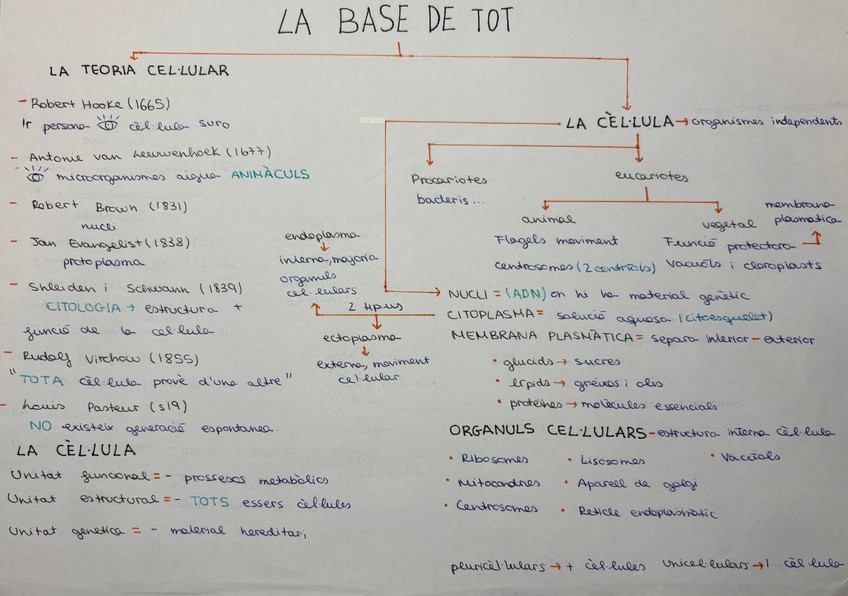 LA BASE DE TOT
LA TEORIA CEL·LULAR
- Robert Hooke (1665)
1r persona cèl·lula suro
- Antonie van Leeuwenhoek (1677)
microorganismes aigua ANIMÀCULS
- Robert Brown (1831)
nucli
- Jan Evangelist (1838)
protoplasma
- Shleiden i Schwann (1839)
CITOLOGIA → estructura +
funció de la cel·lula
- Rudolf Virchow (1855)
"TOTA cèl·lula provè d'una altre"
- Louis Pasteur (s19)
NO existeix generació espontanea.
LA CÈL·LULA
Unitat funcional = - prossesos metabòlics
Unitat estructural = - TOTS essers cèl·lules
Unitat genetica = - material hereditari
LA CÈL·LULA → organismes independents
Procariotes
bacteris...
eucariotes
animal
Flagels moviment
centrosomes (2 centriols)
vegetal
Funció protectora →
membrana
plasmatica
Vacuols i cloroplasts
NUCLI = (ADN) on hi ha material genètic
CITOPLASMA = solució aquosa (citoesquelet)
2 tipus
endoplasma
interna, majoria
organuls
cel·lulars
ectoplasma
externa, moviment
cel·lular
MEMBRANA PLASMÀTICA = separa interior - exterior
• glucids → sucres
• lípids → greixos i olis
• proteïnes → molècules essencials
ORGANULS CEL·LULARS - estructura interna cèl·lula
• Ribosomes
• Lisosomes
• Vacuols
• Mitocondries
• Aparell de golgi
• Centrosomes
• Reticle endoplasmàtic
pluricèl·lulars → + cèl·lules Unicel·lulars → 1 cèl·lula